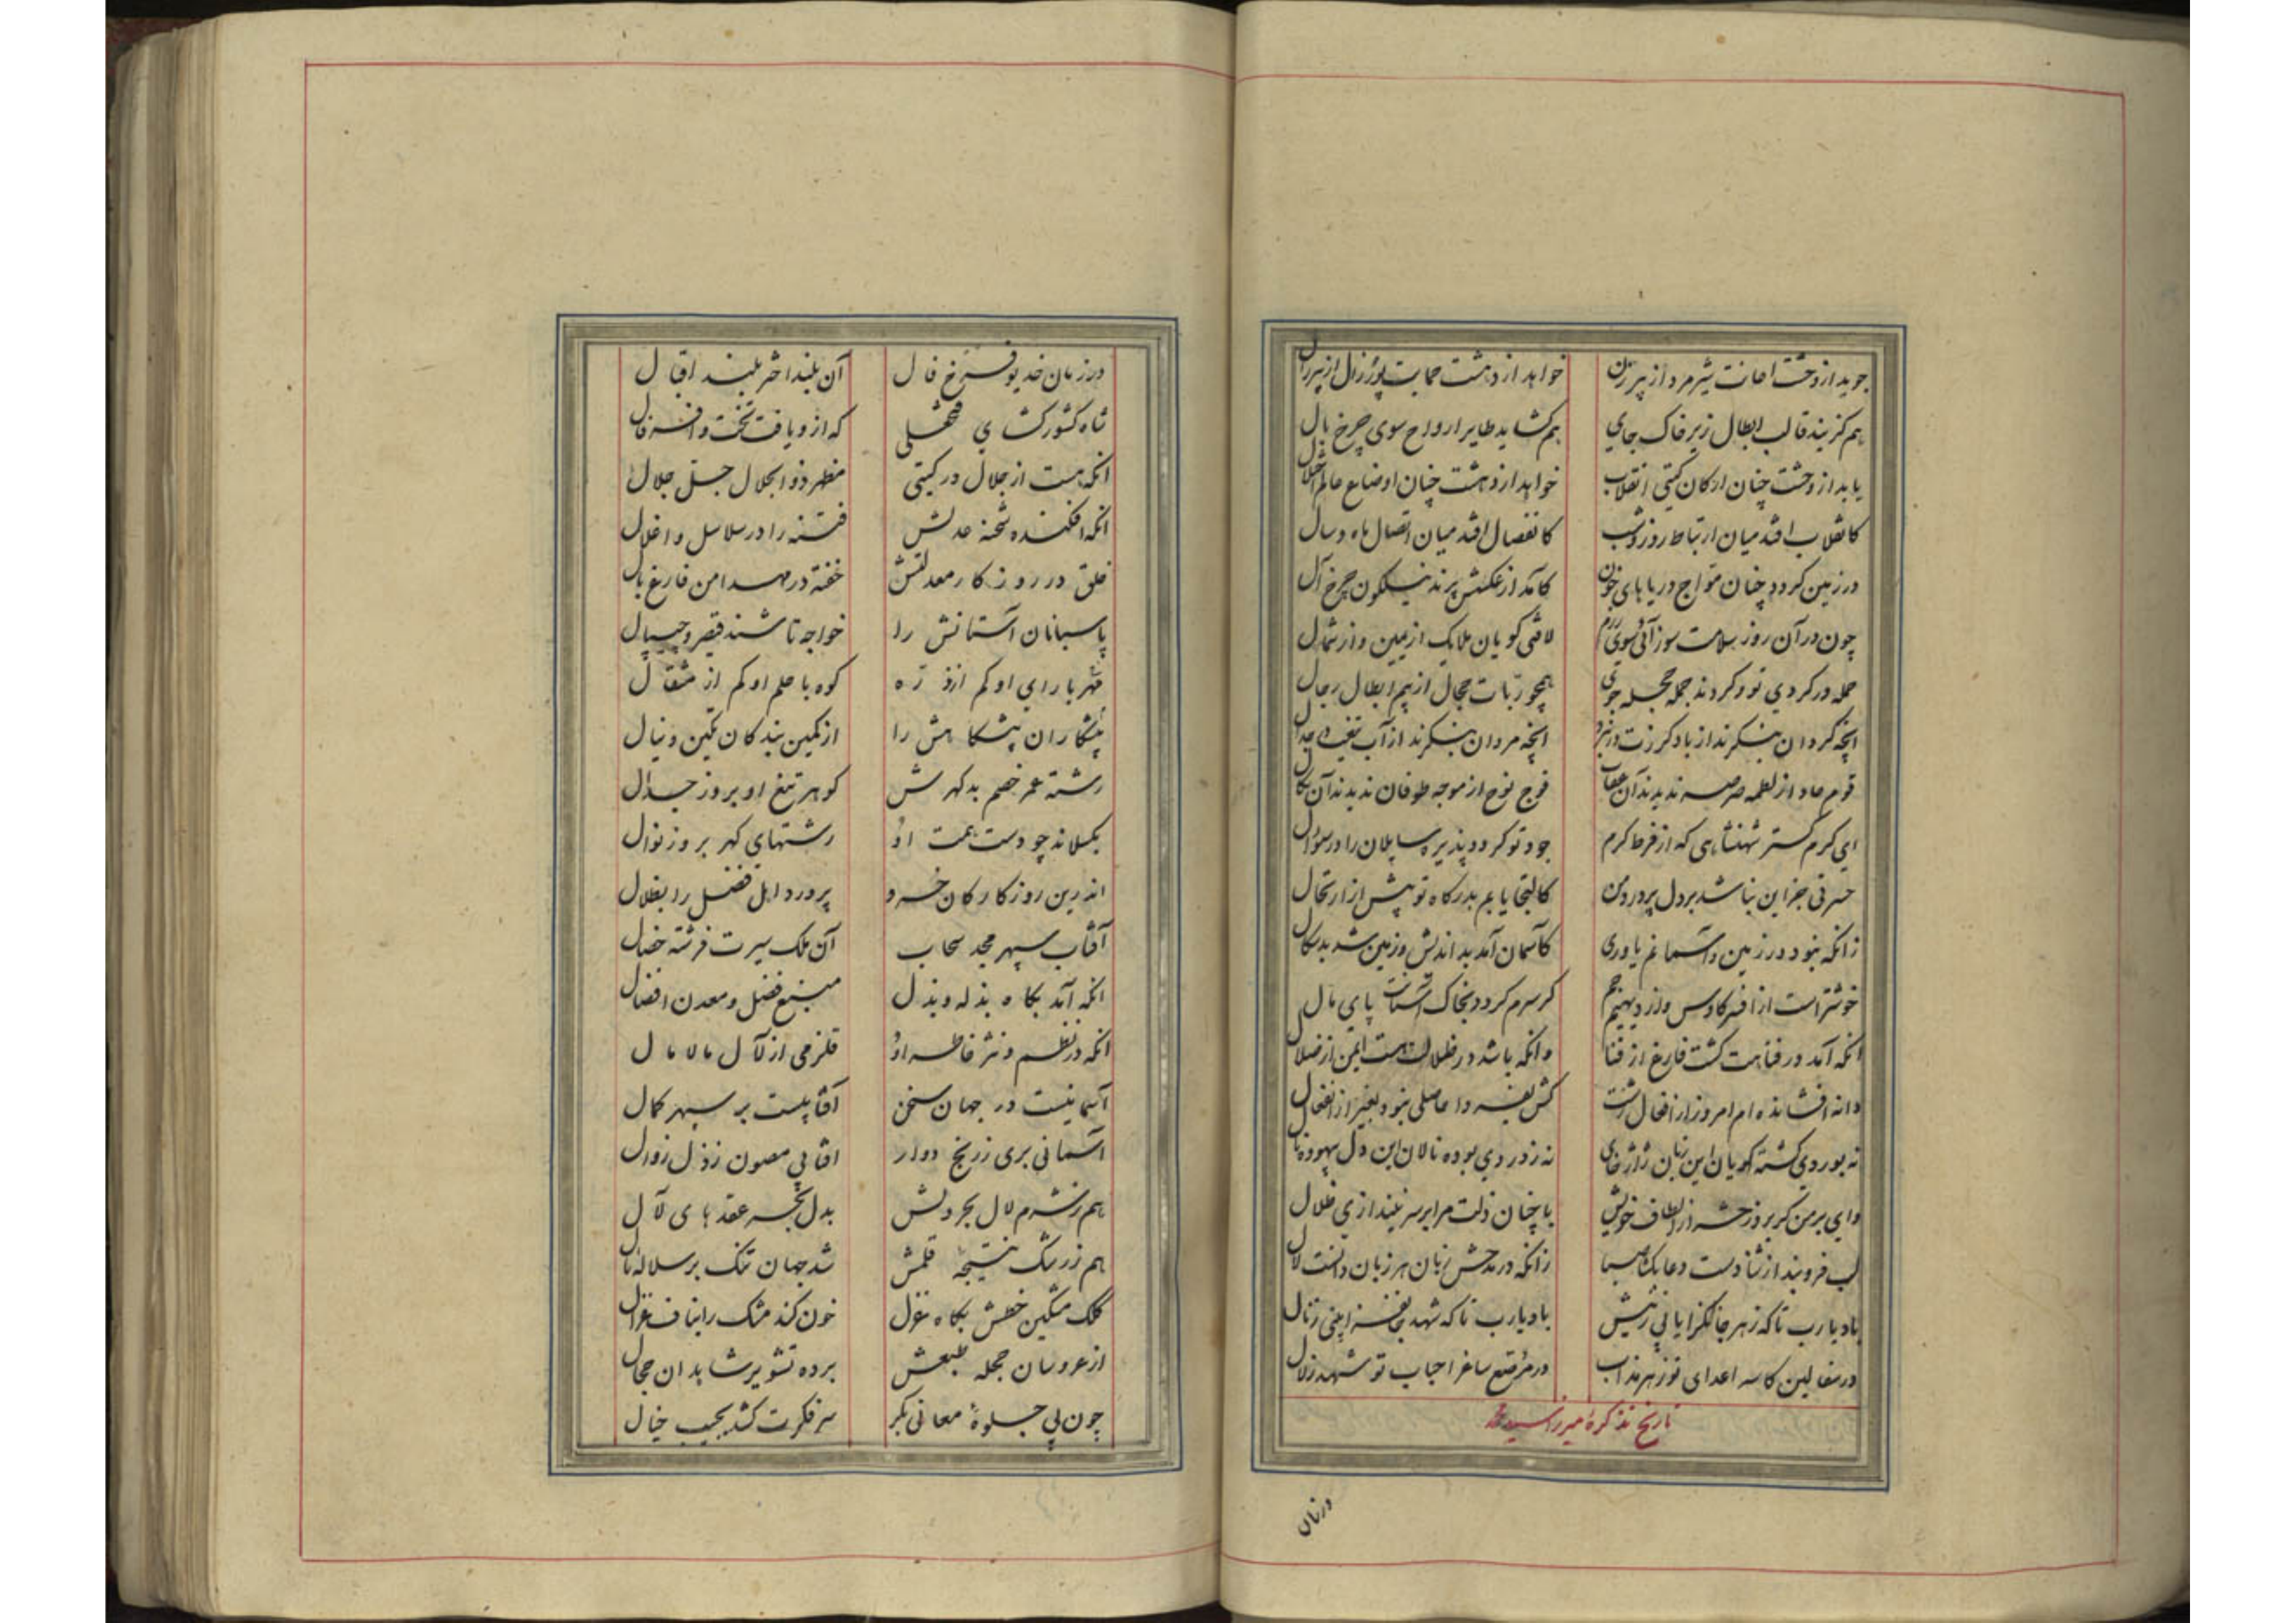 جوید از وحشت اعانت شیر مرد از پیرزن خواهد از دهشت حمایت پور زال از پیر زال
هم گزیند قالب ابطال زیر خاک جای هم گشاید طایر ارواح سوی چرخ بال
یابد از وحشت چنان ارکان گیتی انقلاب خواهد از دهشت چنان اوضاع عالم اختلال
کانقلاب افتد میان ارتباط روز و شب کانفصال افتد میان اتصال ماه و سال
در زمین گردد چنان مواج دریاهای خون کآمد از عکسش پرند نیلگون چرخ آل
چون در آن روز سلامت سوز آئی سوی رزم لافتی گویان ملایک از یمین و از شمال
حمله در گردی تو و گردند جمله حجله جوی همچو ربات حجال از بیم ابطال رجال
آنچه گردان بنگرند از باد گرزت در نبرد آنچه مردان بنگرند از آب تیغت در جدال
قوم عاد از لطمه صرصر ندیدند آن عقاب فوج نوح از موجه طوفان ندیدند آن نکال
ای کرم گستر شهنشاهی که از فرط کرم جود تو گردد پذیره سایلان را در سؤال
حسرتی جز این نباشد بر دل پر درد من کالتجا یابم بدرگاه تو پیش از ارتحال
زانکه نبود در زمین و آسمانم یاوری کآسمان آمد بد اندیش و زمین شد بدسگال
خوشتر است از افسر کاوس و از دیهیم جم گر سرم گردد بخاک آستانت پای مال
آنکه آمد در فناهت گشت فارغ از فنا وانکه باشد در ظلالت هست ایمن از ضلال
دانه افشانده ام امروز از افعال زشت کش بفردا حاصلی نبود بغیر از انفعال
نه بوردی گشته گویان این زبان ژاژخای نه ز دردی بوده نالان این دل بیهوده نال
وای بر من گر بروز حشر از الطاف خویش با چنان ذلت مرا بر سر نیندازی ظلال
لب فروبند از ثنا دست دعا بگشا صبا زانکه در مدحش زبان هر زبان دانست لال
باد یا رب تا که زهر جانگزا یابی ز نیش باد یا رب تا که شهد نغز بینی ز نال
در سفالین کاسه اعدای تو زهر مذاب در مرصع ساغر احباب تو شهد زلال
تاریخ تذکرهٔ میرزا سید محمد
در زمان
در زمان خدیو فرخ فال آن بلند اختر بلند اقبال
شاه کشور گشای فتحعلی که ازو یافت تخت و افسر فال
آنکه هست از جلال در گیتی مظهر ذوالجلال جل جلال
آنکه افکنده شحنه عدلش فتنه را در سلاسل و اغلال
خلق در روزگار معدلتش خفته در مهد امن فارغ بال
پاسبانان آستانش را خواجه تاشند قیصر و چیپال
مهر با رای او کم از ذره کوه با حلم او کم از مثقال
پیشکاران پیشگاهش را از کمین بندگان تکین و نیال
رشته عمر خصم بدگهرش گوهر تیغ او بروز جدال
بگسلاند چو دست همت او رشتهای گهر بروز نوال
اندرین روزگار کان خسرو پرورد اهل فضل را بظلال
آفتاب سپهر مجد سحاب آن ملک سیرت فرشته خصال
آنکه آمد بگاه بذله و بذل منبع فضل و معدن افضال
آنکه در نظم و نثر خاطر او قلزمی از لآل مالامال
آسمانیست در جهان سخن آفتابیست بر سپهر کمال
آسمانی بری ز رنج دوار آفتابی مصون ز ذل زوال
هم ز شرم لآل بحر دلش بدل بحر عقدهای لآل
هم ز رشک نتیجهٔ قلمش شد جهان تنگ بر سلالهٔ نال
کلک مشکین خطش بگاه غزل خون کند مشک را بناف غزال
از عروسان حجله طبعش برده تشویر شاهدان حجال
چون پی جلوهٔ معانی بکر سر فکرت کشد بجیب خیال